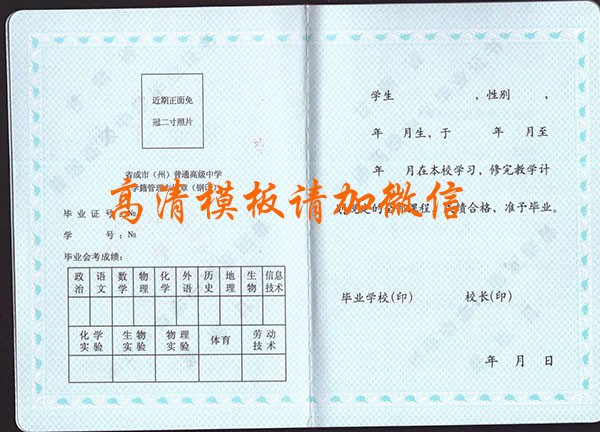 近期正面免
冠二寸照片
省或市（州）普通高级中学
学籍管理专用章（钢印）
毕业证号：№
学 号：№
毕业会考成绩：
政治 语文 数学 物理 化学 外语 历史 地理 生物 信息技术
化学实验 生物实验 物理实验 体育 劳动技术
学生 ，性别 ，
年 月生，于 年 月至
年 月在本校学习，修完教学计
划规定的全部课程，成绩合格，准予毕业。
毕业学校（印） 校长（印）
年 月 日
高清模板请加微信